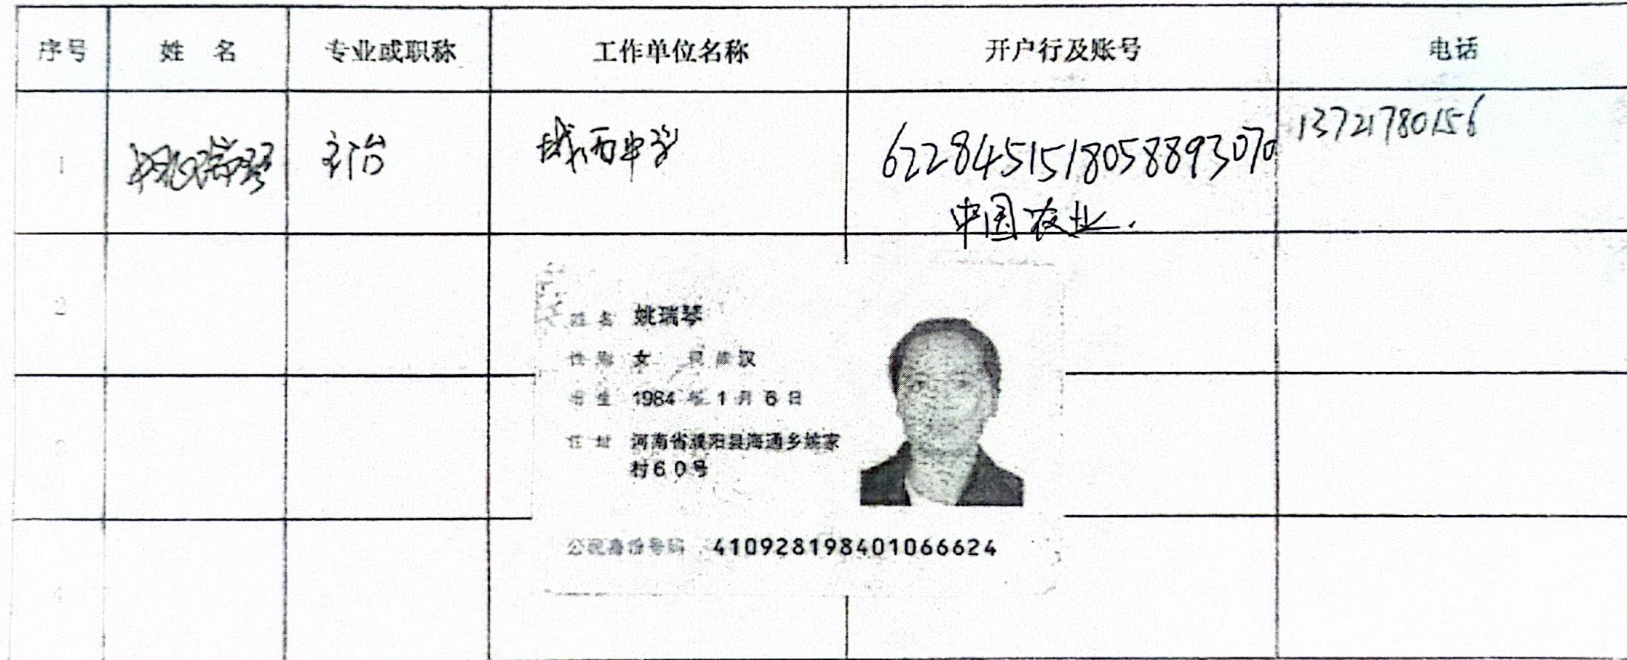 序号 姓 名 专业或职称 工作单位名称 开户行及账号 电话
1 姚瑞琴 主治 城西中学 6228451518058893070 13721780156
中国农业.
2
姓名 姚瑞琴
性别 女 民族 汉
出生 1984年1月6日
住址 河南省濮阳县海通乡姚家
村60号
3
公民身份号码 410928198401066624
4